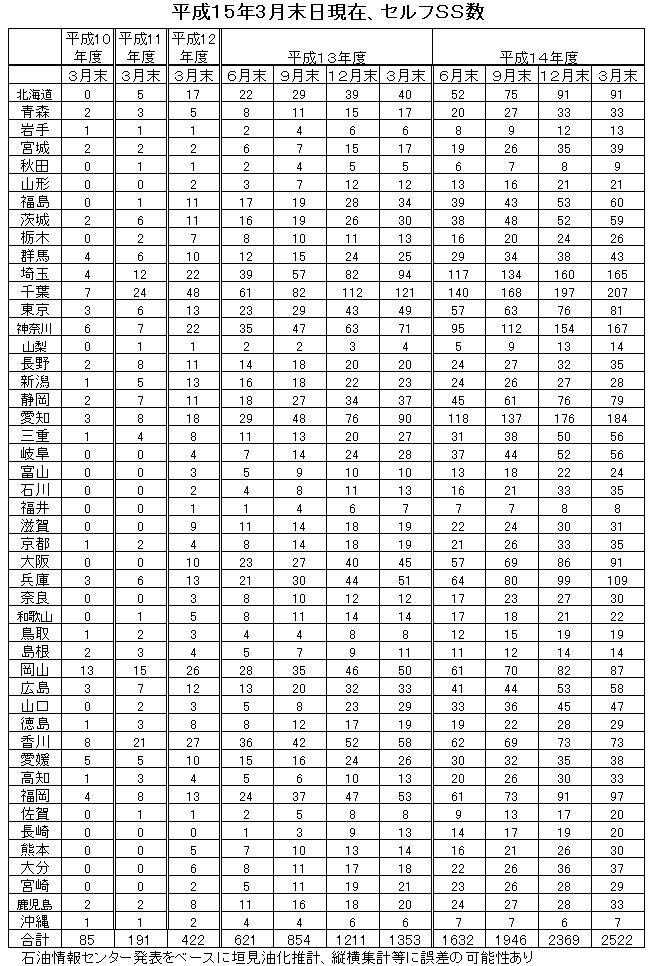 平成15年3月末日現在、セルフSS数
平成10年度 平成11年度 平成12年度 平成13年度 平成14年度
3月末 3月末 3月末 6月末 9月末 12月末 3月末 6月末 9月末 12月末 3月末
北海道 0 5 17 22 29 39 40 52 75 91 91
青森 2 3 5 8 11 15 17 20 27 33 33
岩手 1 1 1 2 4 6 6 8 9 12 13
宮城 2 2 2 6 7 15 17 19 26 35 39
秋田 0 1 1 2 4 5 5 6 7 8 9
山形 0 0 2 3 7 12 12 13 16 21 21
福島 0 1 11 17 19 28 34 39 43 53 60
茨城 2 6 11 16 19 26 30 38 48 52 59
栃木 0 2 7 8 10 11 13 16 20 24 26
群馬 4 6 10 12 15 24 25 29 34 38 43
埼玉 4 12 22 39 57 82 94 117 134 160 165
千葉 7 24 48 61 82 112 121 140 168 197 207
東京 3 6 13 23 29 43 49 57 63 76 81
神奈川 6 7 22 35 47 63 71 95 112 154 167
山梨 0 1 1 2 2 3 4 5 9 13 14
長野 2 8 11 14 18 20 20 24 27 32 35
新潟 1 5 13 16 18 22 23 24 26 27 28
静岡 2 7 11 18 27 34 37 45 61 76 79
愛知 3 8 18 29 48 76 90 118 137 176 184
三重 1 4 8 11 13 20 27 31 38 50 56
岐阜 0 0 4 7 14 24 28 37 44 52 56
富山 0 0 3 5 9 10 10 13 18 22 24
石川 0 0 2 4 8 11 13 16 21 33 35
福井 0 0 1 1 4 6 7 7 7 8 8
滋賀 0 0 9 11 14 18 19 22 24 30 31
京都 1 2 4 8 14 18 19 21 26 33 35
大阪 0 0 10 23 27 40 45 57 69 86 91
兵庫 3 6 13 21 30 44 51 64 80 99 109
奈良 0 0 3 8 10 12 12 17 23 27 30
和歌山 0 1 5 8 11 14 14 17 18 21 22
鳥取 1 2 3 4 4 8 8 12 15 19 19
島根 2 3 4 5 7 9 11 11 12 14 14
岡山 13 15 26 28 35 46 50 61 70 82 87
広島 3 7 12 13 20 32 33 41 44 53 58
山口 0 2 3 5 8 23 29 33 36 45 47
徳島 1 3 8 8 12 17 19 19 22 28 29
香川 8 21 27 36 42 52 58 62 69 73 73
愛媛 5 5 10 15 16 24 26 30 32 35 38
高知 1 3 4 5 6 10 13 20 26 30 33
福岡 4 8 13 24 37 47 53 61 73 91 97
佐賀 0 1 1 2 5 8 8 9 13 17 20
長崎 0 0 0 1 3 9 13 14 17 19 20
熊本 0 0 5 7 10 13 14 16 21 26 30
大分 0 0 6 8 11 17 18 22 26 36 37
宮崎 0 0 2 5 11 19 21 23 26 28 29
鹿児島 2 2 8 11 16 18 20 24 27 28 33
沖縄 1 1 2 4 4 6 6 7 7 6 7
合計 85 191 422 621 854 1211 1353 1632 1946 2369 2522
石油情報センター発表をベースに垣見油化推計、縦横集計等に誤差の可能性あり